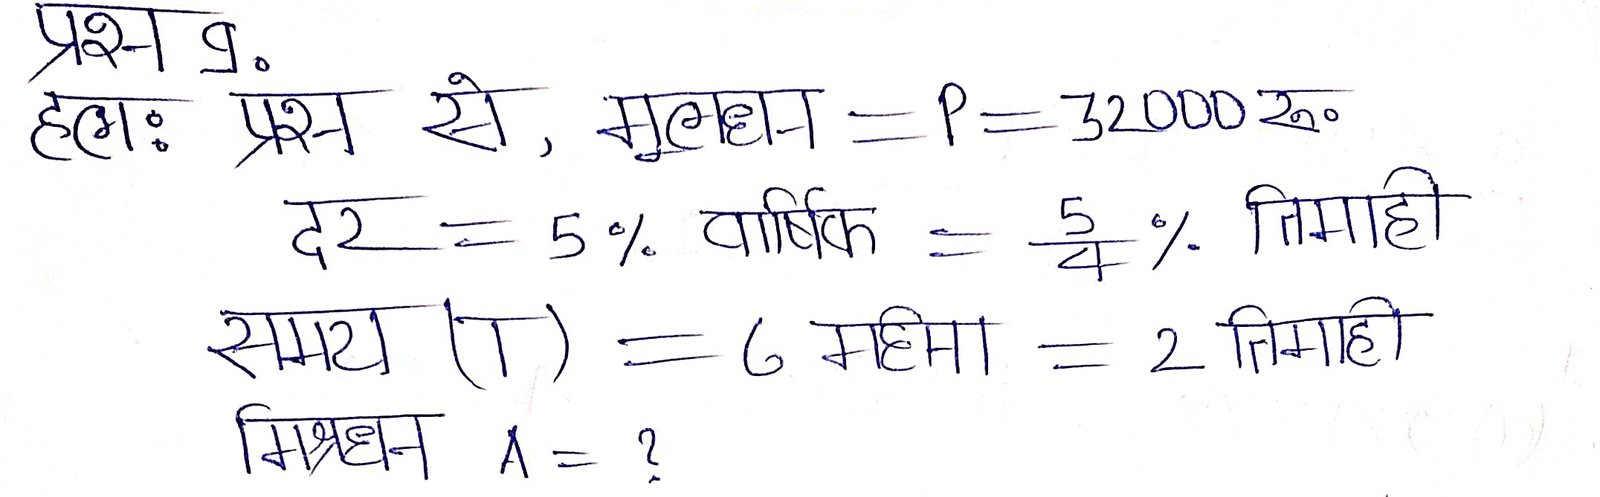 प्रश्न 9.
हल: प्रश्न से, मुलधन = P = 32000 रू०
दर = 5 % वार्षिक = 5/4 % तिमाही
समय (T) = 6 महिमा = 2 तिमाही
मिश्रधन A = ?